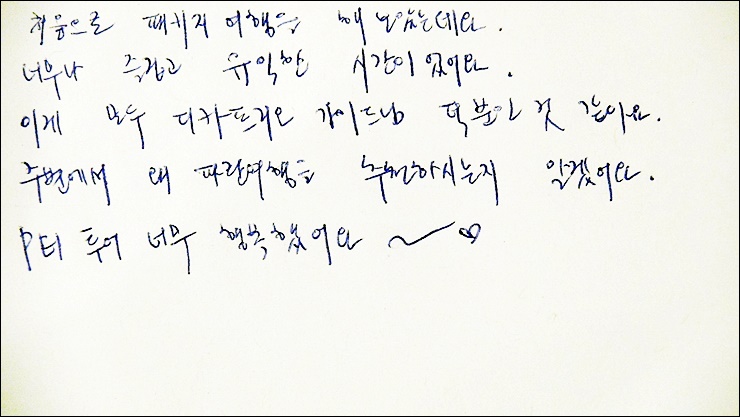 처음으로 패키지 여행을 해 보았는데요.
너무나 즐겁고 유익한 시간이었어요.
이게 모두 디카프리오 가이드님 덕분인 것 같아요.
주변에서 왜 파란여행을 추천하시는지 알겠어요.
PEI 투어 너무 행복했어요 ~♡